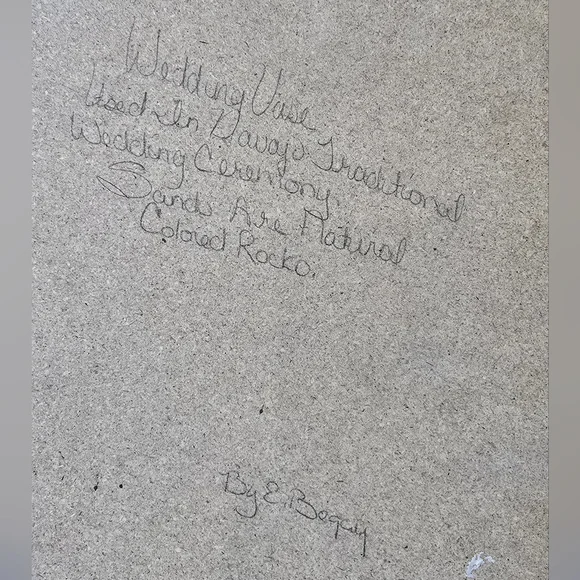 Wedding Vase
Used In Navajo Traditional
Wedding Ceremony.
Sands Are Natural
Colored Rocks.
By E. Begay